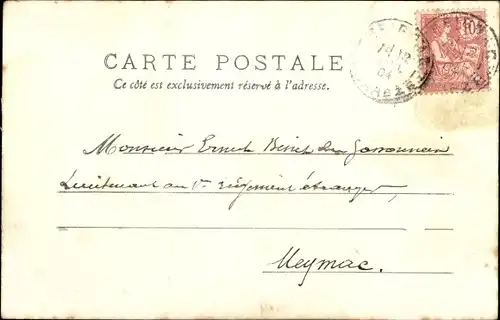 CARTE POSTALE
Ce côté est exclusivement réservé à l'adresse.
10
04
Monsieur Ernest Binet du
Lieutenant au 1er régiment étranger,
Meymac.